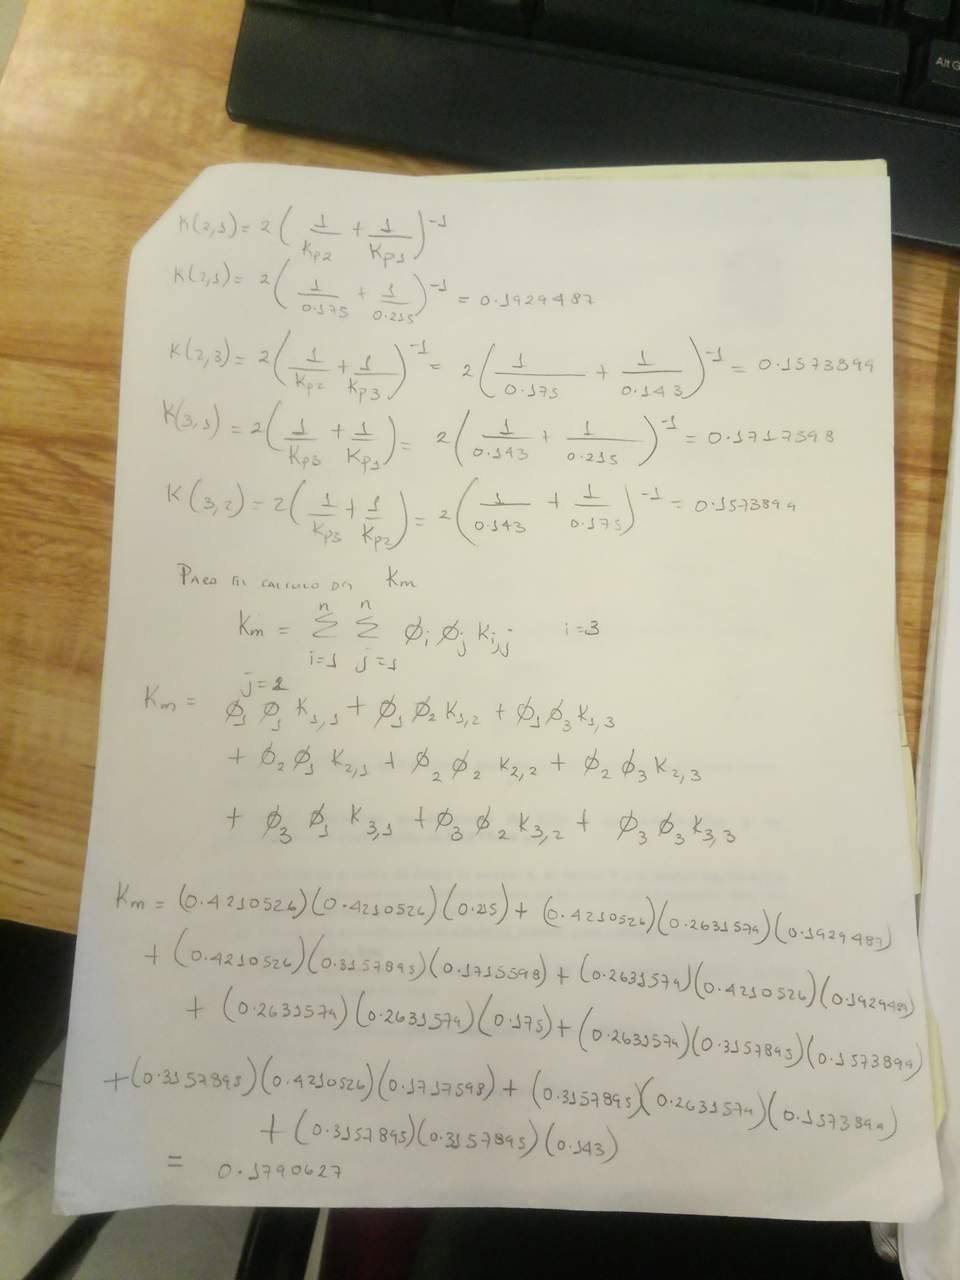 K(2,1) = 2 ( 1/Kp2 + 1/Kp1 )^-1
K(2,1) = 2 ( 1/0.175 + 1/0.215 )^-1 = 0.1929487
K(2,3) = 2 ( 1/Kp2 + 1/Kp3 )^-1 = 2 ( 1/0.175 + 1/0.143 )^-1 = 0.1573899
K(3,1) = 2 ( 1/Kp3 + 1/Kp1 ) = 2 ( 1/0.143 + 1/0.215 )^-1 = 0.1717598
K(3,2) = 2 ( 1/Kp3 + 1/Kp2 ) = 2 ( 1/0.143 + 1/0.175 )^-1 = 0.1573899
Para el calculo de Km
Km = n Σ i=1 n Σ j=1 ϕi ϕj Ki,j i=3
j=2
Km = ϕ1 ϕ1 K1,1 + ϕ1 ϕ2 K1,2 + ϕ1 ϕ3 K1,3
+ ϕ2 ϕ1 K2,1 + ϕ2 ϕ2 K2,2 + ϕ2 ϕ3 K2,3
+ ϕ3 ϕ1 K3,1 + ϕ3 ϕ2 K3,2 + ϕ3 ϕ3 K3,3
Km = (0.4210526)(0.4210526)(0.215) + (0.4210526)(0.2631579)(0.1929487)
+ (0.4210526)(0.3157895)(0.1715598) + (0.2631579)(0.4210526)(0.1929489)
+ (0.2631579)(0.2631579)(0.175) + (0.2631579)(0.3157895)(0.1573899)
+ (0.3157895)(0.4210526)(0.1717598) + (0.3157895)(0.2631579)(0.1573899)
+ (0.3157895)(0.3157895)(0.143)
= 0.1790627
Alt G